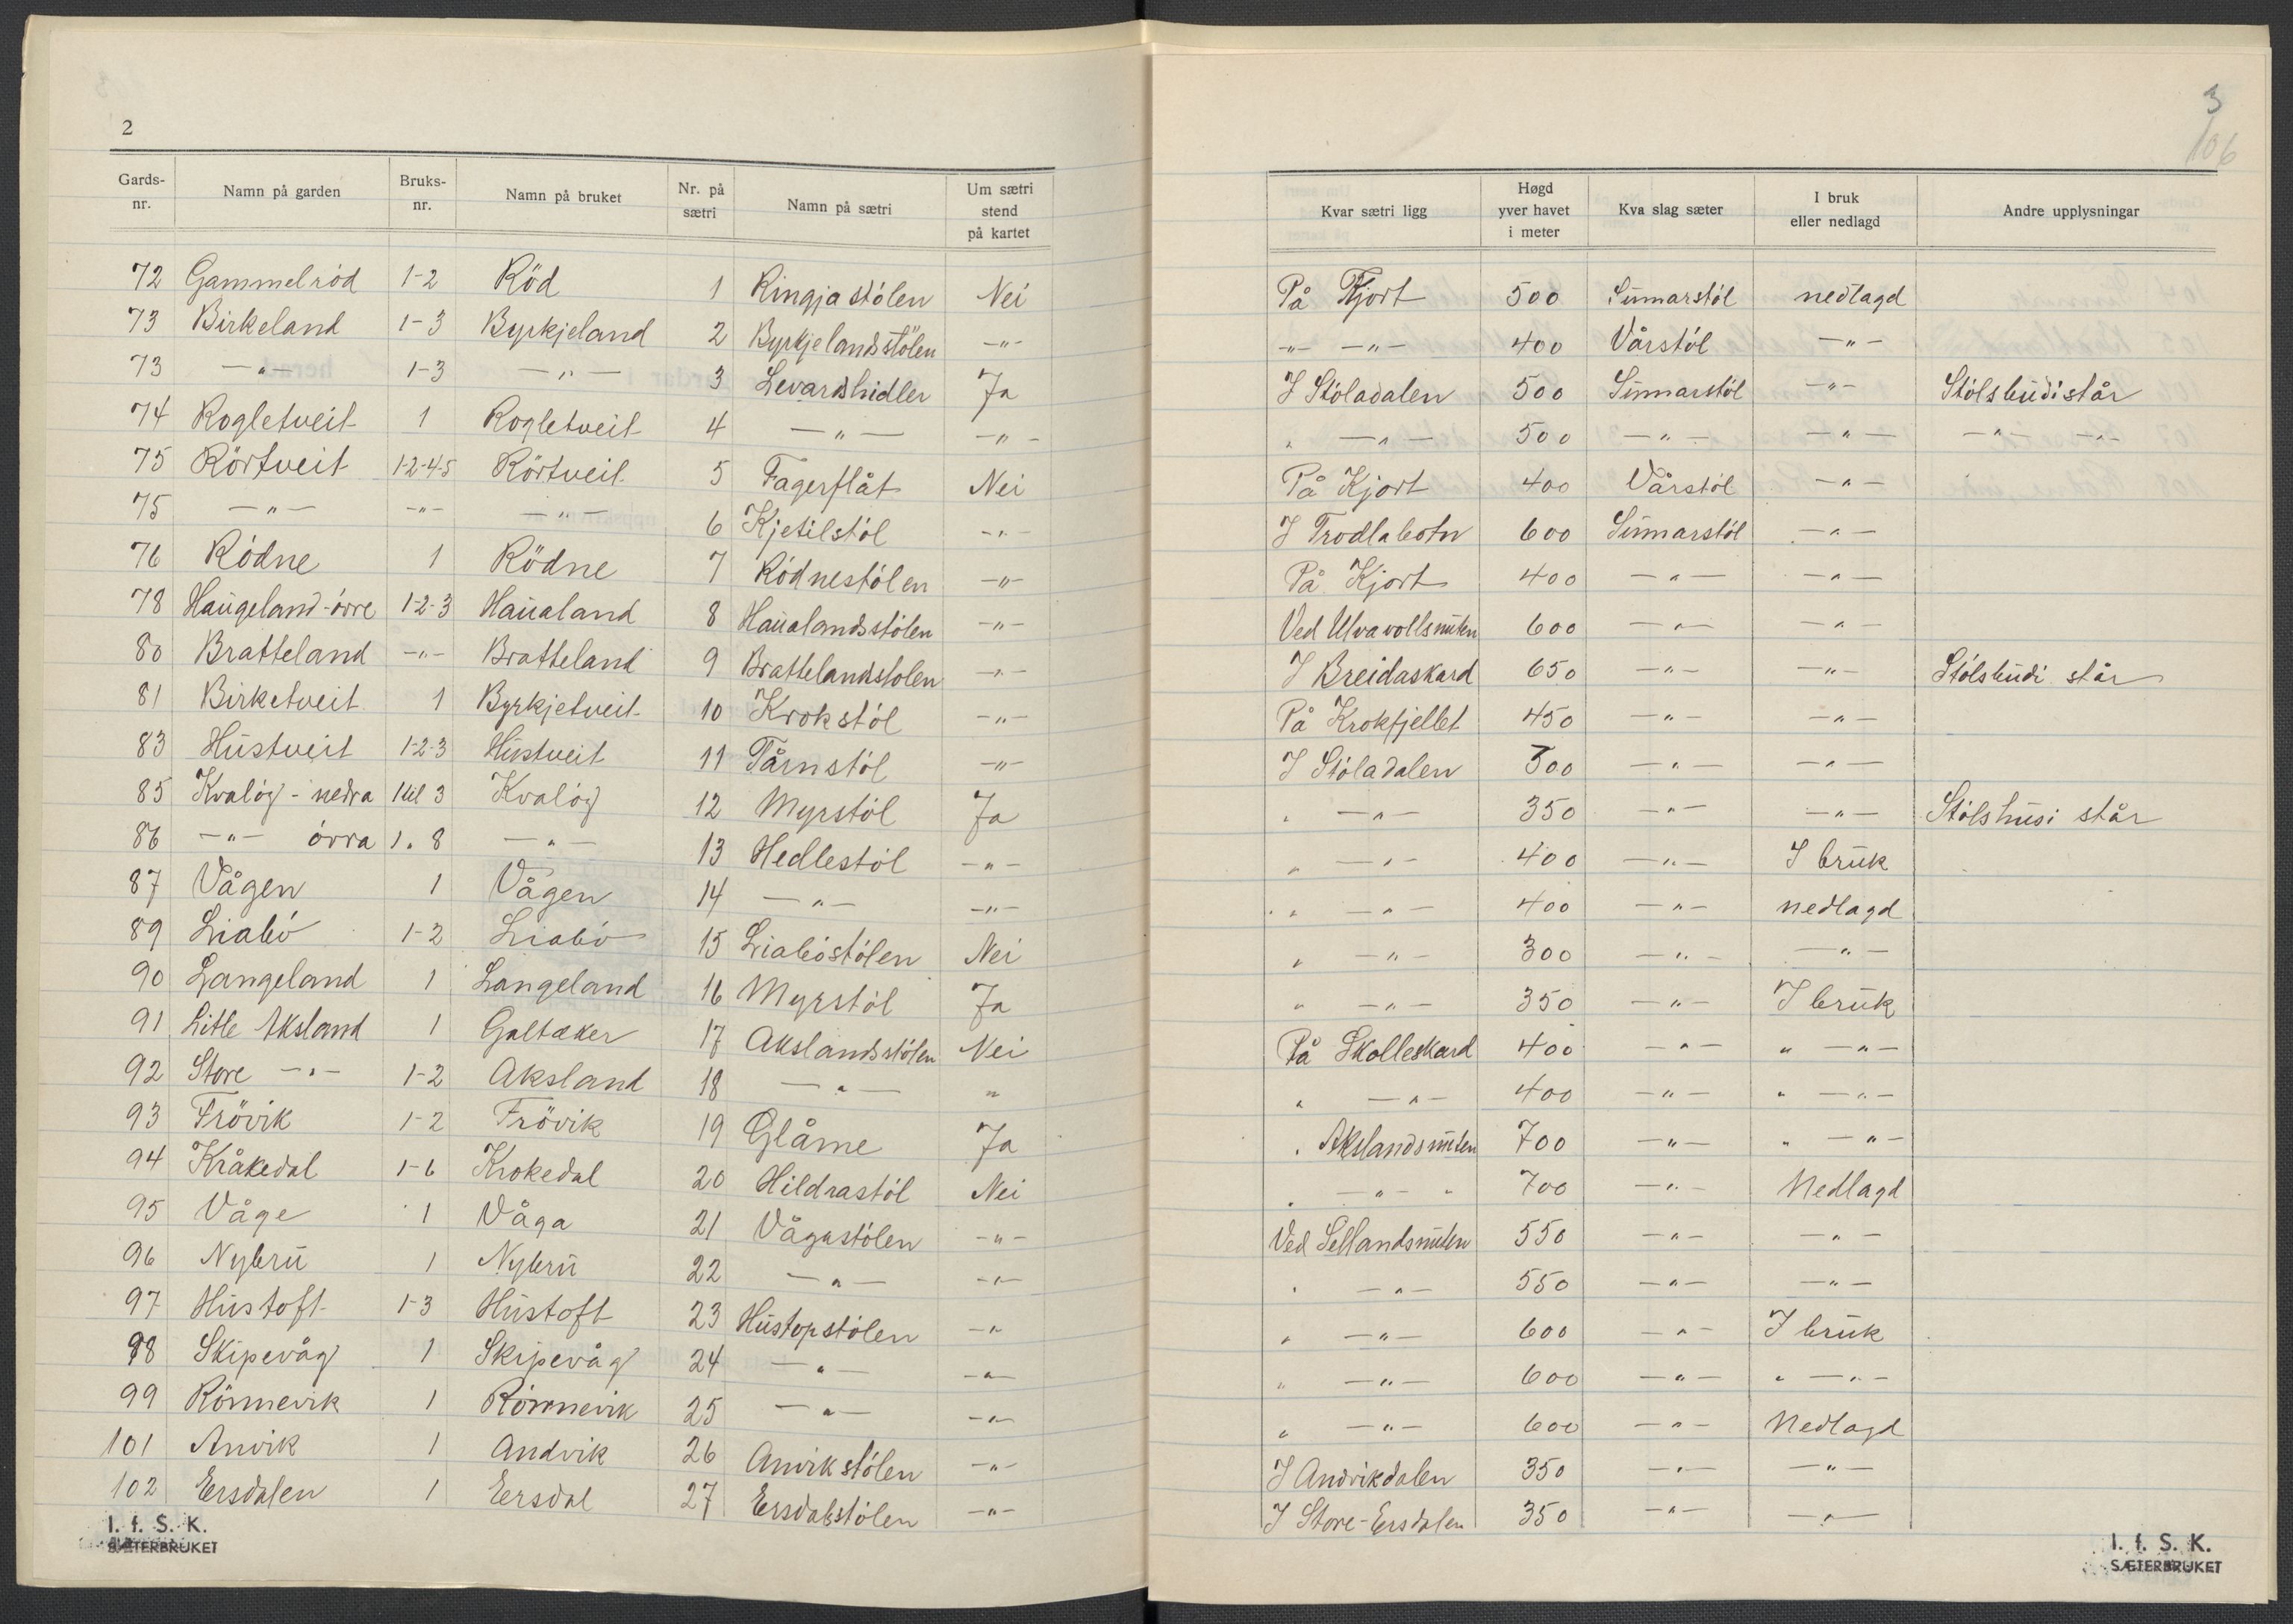 2
Gards-nr. | Namn på garden | Bruks-nr. | Namn på bruket | Nr. på sætri | Namn på sætri | Um sætri stend på kartet
72 Gammelröd 1-2 Röd 1 Ringjastölen Nei
73 Birkeland 1-3 Byrkjeland 2 Byrkjelandsstölen -"-
73 -"- 1-3 -"- 3 Levardshidler Ja
74 Rogletveit 1 Rogletveit 4 -"- -"-
75 Rörtveit 1-2-4-5 Rörtveit 5 Fagerflåt Nei
75 -"- -"- -"- 6 Kjetilstöl -"-
76 Rödne 1 Rödne 7 Rödnestölen -"-
78 Haugeland-övre 1-2-3 Haualand 8 Haualandsstölen -"-
80 Bratteland -"- Bratteland 9 Brattelandstolen -"-
81 Birketveit 1 Byrkjetveit 10 Krokstöl -"-
83 Hustveit 1-2-3 Hustveit 11 Tårnstöl -"-
85 Kvalög - nedra 1 til 3 Kvalög 12 Myrstöl Ja
86 -"- övra 1 " 8 -"- 13 Hedlestöl -"-
87 Vågen 1 Vågen 14 -"- -"-
89 Liabö 1-2 Liabö 15 Liaböstölen Nei
90 Langeland 1 Langeland 16 Myrstöl Ja
91 Litle Aksland 1 Galtaker 17 Akslandsstölen Nei
92 Store -"- 1-2 Aksland 18 -"- "
93 Frövik 1-2 Frövik 19 Glåme Ja
94 Kråkedal 1-6 Krokedal 20 Hildrastöl Nei
95 Våge 1 Våga 21 Vågastölen -"-
96 Nybru 1 Nybru 22 -"- -"-
97 Hustoft 1-3 Hustoft 23 Hustopstölen -"
98 Skipevåg 1 Skipevåg 24 -"- -"-
99 Rönnevik 1 Rönnevik 25 -"- -"-
101 Anvik 1 Andvik 26 Anvikstölen -"-
102 Ersdalen 1 Ersdal 27 Ersdalstölen -"-
I. f. S. K.
SÆTERBRUKET
3
106
Kvar sætri ligg | Høgd yver havet i meter | Kva slag sæter | I bruk eller nedlagd | Andre upplysningar
På Kjort 500 Sumarstöl nedlagd
-"- -"- 400 Vårstöl -"-
I Stöladalen 500 Sumarstöl -"- Stölsbudi står
" -"- 500 -"- -"- -"- -"-
På Kjort 400 Vårstöl -"-
I Trodlabotn 600 Sumarstöl -"-
På Kjort 400 -"- -"-
Ved Ulvavollsnuten 600 -"- -"-
I Breidaskard 650 -"- -"- Stölsbudi står
På Krokfjellet 450 -"- -"-
I Stöladalen 300 -"- -"-
" -"- 350 -"- -"- Stölshusi står
" -"- 400 -"- I bruk
" -"- 400 -"- nedlagd
" -"- 300 -"- -"-
" -"- 350 -"- I bruk
På Skolleskard 400 -"- " -"-
" -"- 400 -"- " -"-
" Akslandsnuten 700 -"- " -"-
" -"- " 700 -"- Nedlagd
Ved Sellandsnuten 550 -"- -"-
" -"- 550 -"- -"-
" -"- 600 -"- I bruk
" -"- 600 -"- " -"-
" -"- 600 -"- Nedlagd
I Andvikdalen 350 -"- -"-
I Store-Ersdalen 350 -"- -"-
I. f. S. K.
SÆTERBRUKET